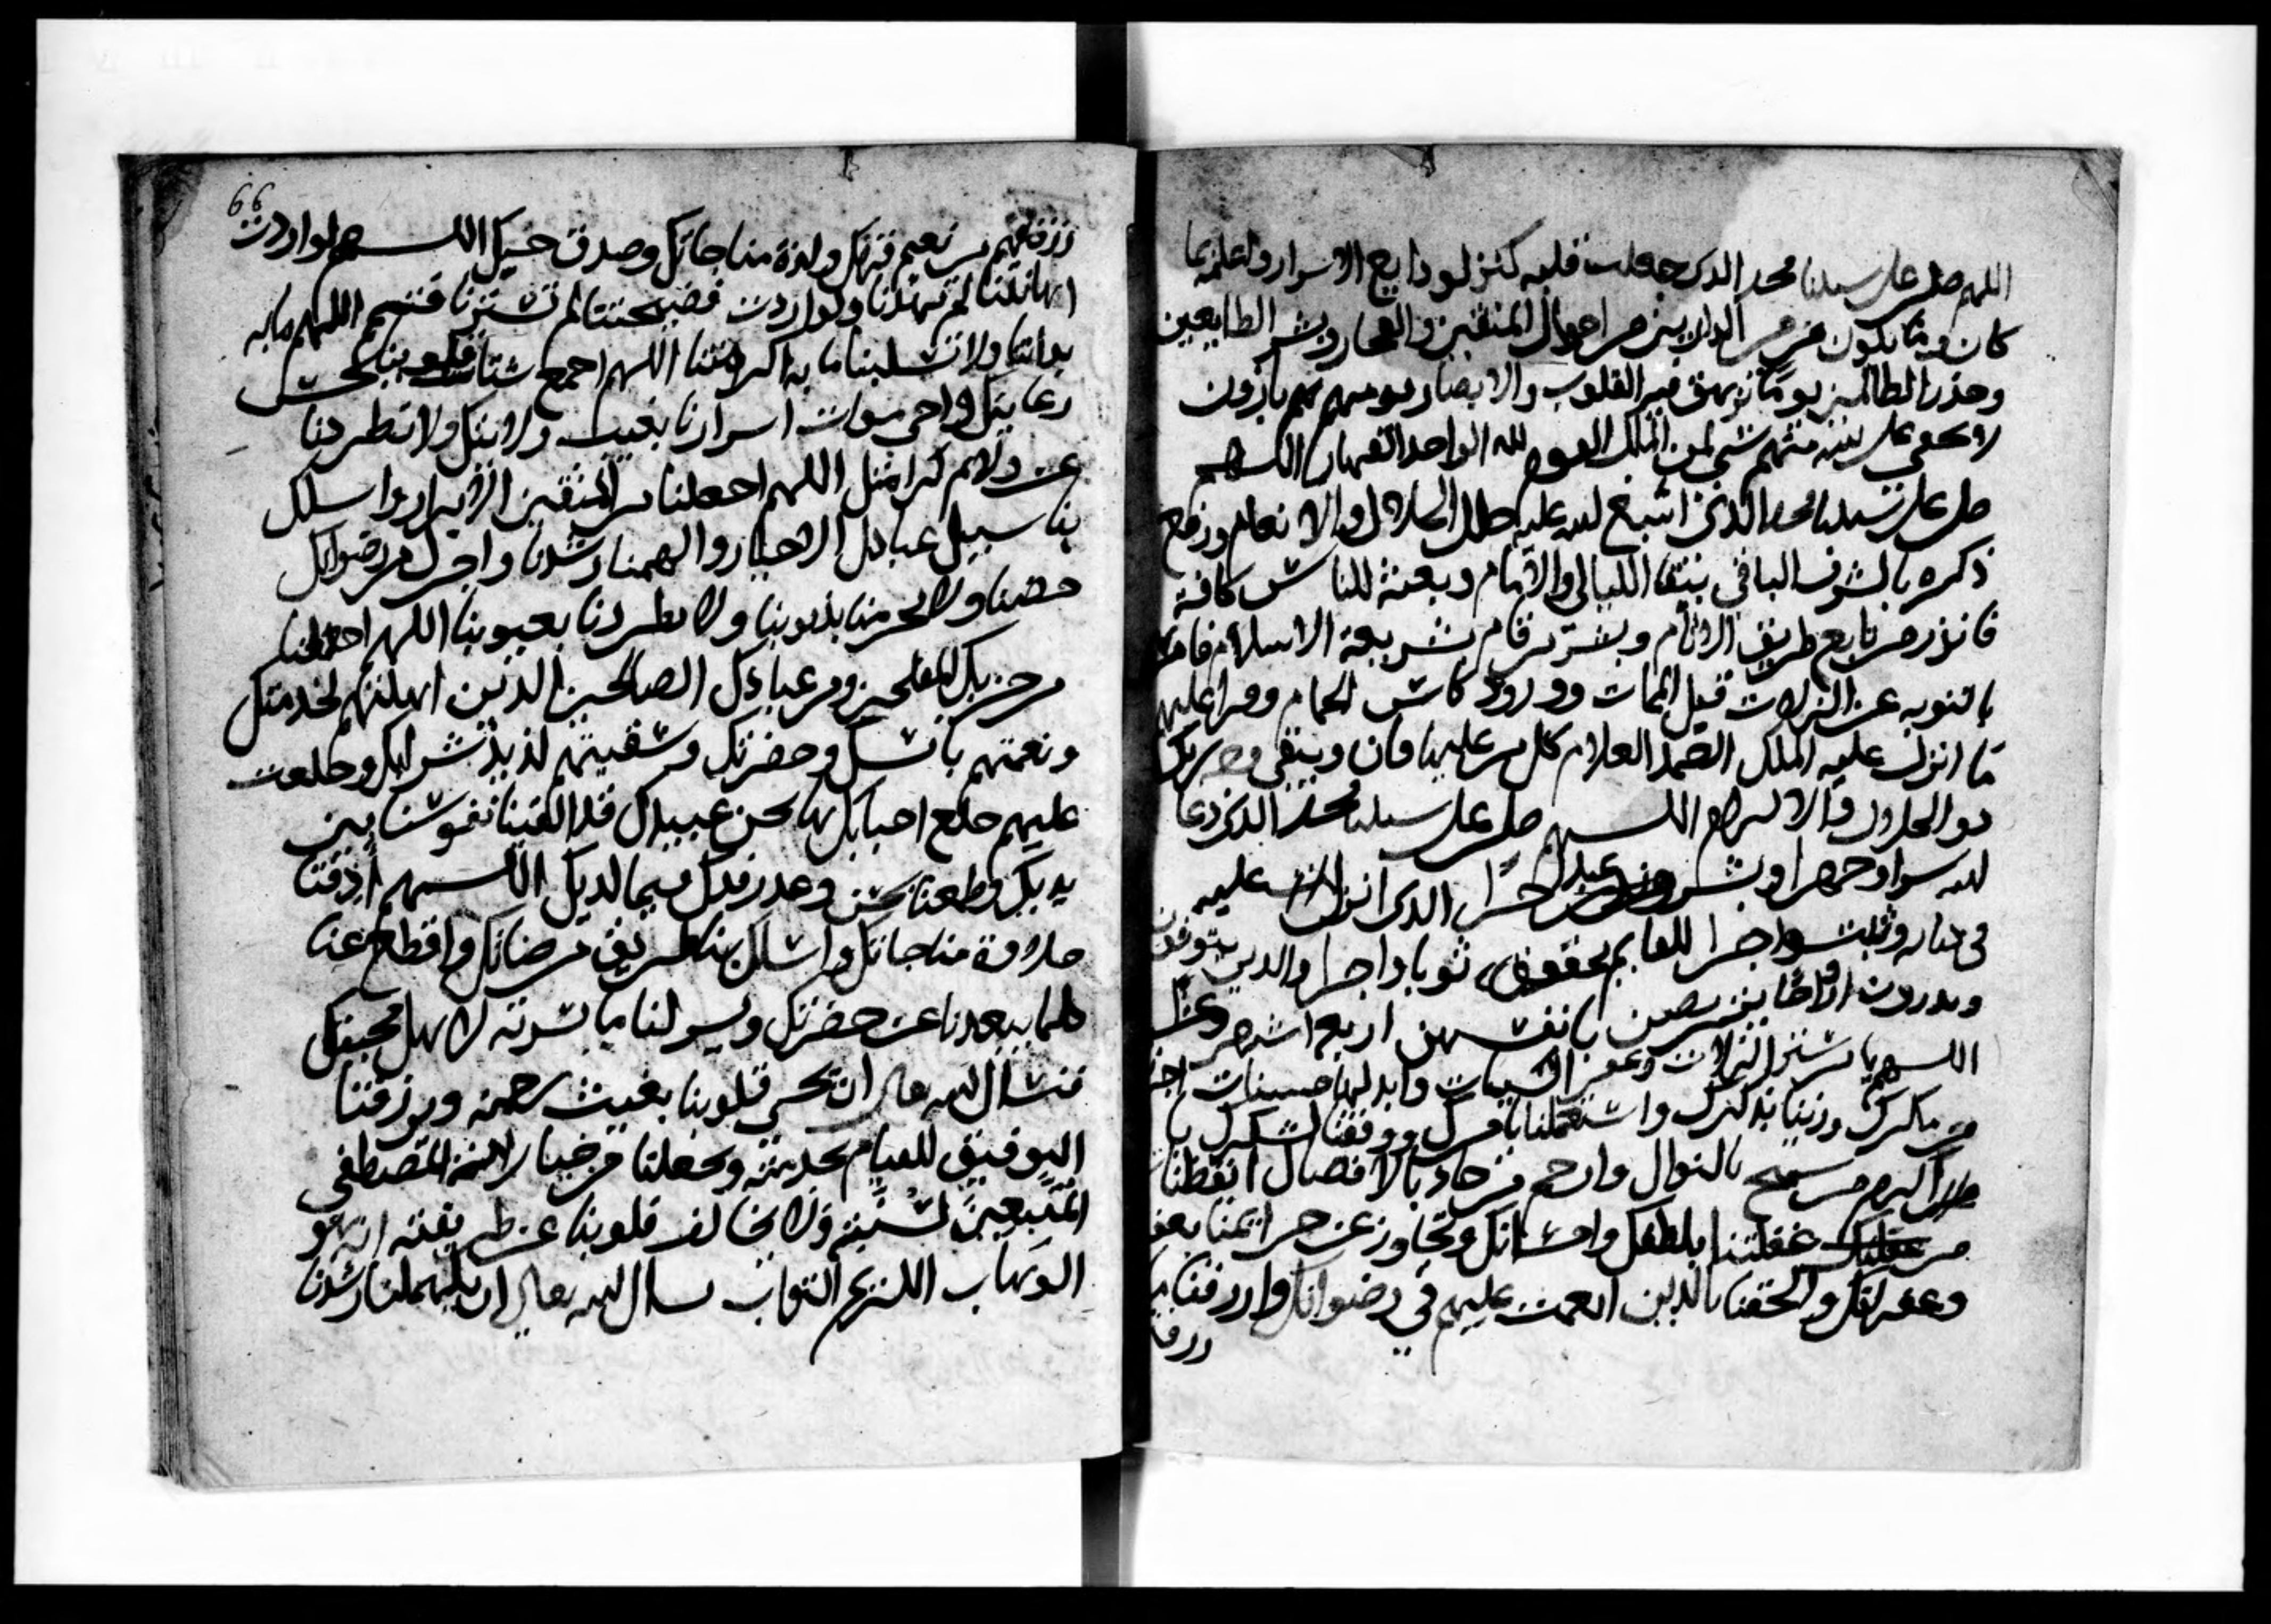 اللهم صل على سيدنا محمد الذي جعلت قلبه كنز لودايع الاسرار واعلمته بما
كان وما يكون من الدارين من احوال المتقين والفجار وبشر الطايعين
وحذر الظالمين يوما تزهق فيه القلوب والابصار يومهم هم بارزون
لا يخفى على الله منهم شي لمن الملك اليوم لله الواحد القهار اللهم
صل على سيدنا محمد الذي اسبغ الله عليه حلل الجلال والانعام ورفع
ذكره بالشرف الباقي بنقا الليالي والايام وبعثه للناس كافة
فانذر من تابع طريق الاثام وبشر من قام بشريعة الاسلام فامر
بالتوبه عن الزلات قبل الممات وورود كاس الحمام وقرا عليهم
ما انزل عليه الملك الصمد العلام كل من عليها فان ويبقى وجه ربك
ذو الجلال والاكرام اللهم صل على سيدنا محمد الذي دعا
لله سرا وجهرا وبشر الذي انزلت عليه
في كتابه اجرا للقايم بحقوق ثوابا واجرا والذين يتوفون
ويذرون ازواجا يتربصن بانفسهن اربعة اشهر وعشرا
اللهم يا ستر الزلات وغفر السيات وابدلها حسنات
من مكرك وزينا بذكرك واستعملنا بامرك ووفقنا لشكرك يا
اكرم من سمح بالنوال وارحم من جاد بالافضال ايقظنا
من غفلتنا بلطفك واحسانك وتجاوز عن جرايمنا بعفو
وغفرانك والحقنا بالذين انعمت عليهم في رضوانك وارزقنا ما
رزقتهم
66
رزقتهم من نعيم قربك ولذة مناجاتك وصدق حبك اللهم لو اردت
اهانتنا لم تهدنا ولو اردت فضيحتنا لم تسترنا فتمم اللهم ما به
بداتنا ولا تسلبنا ما به اكرمتنا اللهم اجمع شتات قلوبنا بحسن
رعايتك واحي موات اسرارنا بغيث ولايتك ولا تطردنا
عن دلايم كرامتك اللهم اجعلنا من المتقين الابرار واسلك
بنا سبيل عبادك الاخيار والهمنا رشدنا واجزل من رضوانك
حضنا ولا تحرمنا بذنوبنا ولا تطردنا بعيوبنا اللهم اجعلنا
من حزبك المفلحين ومن عبادك الصالحين الذين اهلتهم لخدمتك
ونعمتهم بانسك وحضرتك وسقيتهم لذيذ شرابك وخلعت
عليهم خلع احبابك ها نحن عبيدك قد القينا نفوسنا بين
يديك وطعنا بحسن وعد رفدك فيما لديك اللهم اذقنا
حلاوة مناجاتك واسلك بنا طريق مرضاتك واقطع عنا
كلما يبعدنا عن حضرتك ويسر لنا ما يسرته لاهل محبتك
فنسال الله تعالى ان يحي قلوبنا بغيث رحمته ويرزقنا
التوفيق للقيام بخدمته ويجعلنا من خيار لامة المصطفى
المتبعين لسنته ولا يخالف قلوبنا عن طريقته انه هو
الوهاب الكريم التواب نسال الله تعالى ان يلهمنا رشدنا